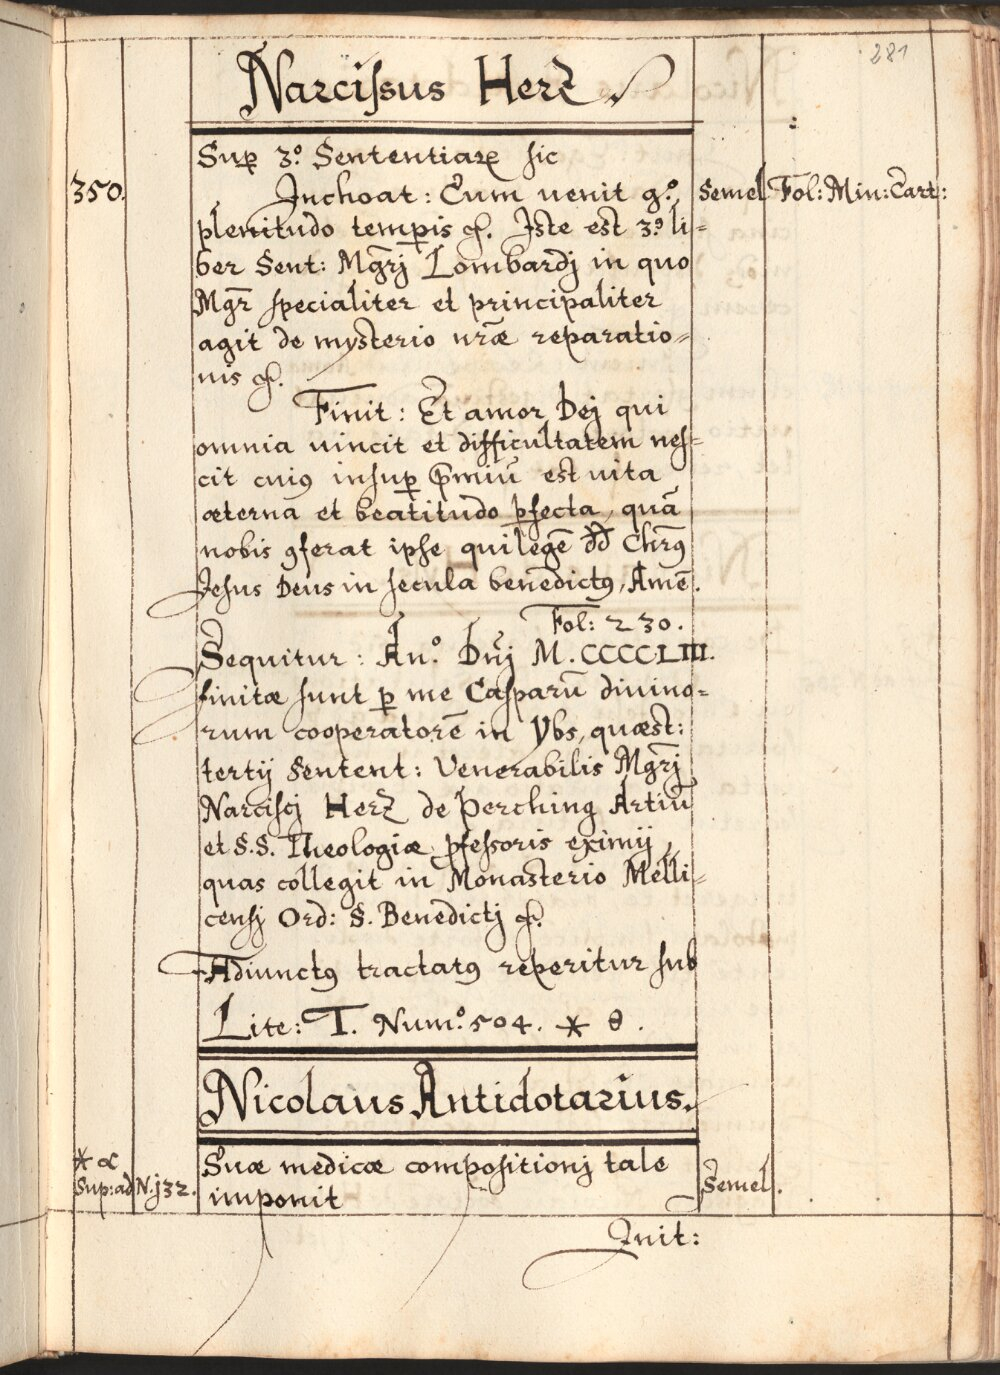 281
Narcissus Herz.
Sup 3.º Sententiarū sic
350. Inchoat: Cum venit g.º Semel Fol: Min: Cart:
plenitudo temp̲is &c. Iste est 3.9 li=
ber Sent: Mgr̄j Lombardj in quo
Mgr̄ specialiter et principaliter
agit de mysterio nr̄æ reparatio=
nis &c.
Finit: Et amor Dej qui
omnia vincit et difficultatem nes=
cit cui9 insup̲ p̄miū est vita
æterna et beatitudo p̲fecta, quā
nobis 9ferat ipse qui legē dd Chr̄9
Jesus Deus in secula benedict9, Amē.
Fol: 230.
Sequitur: An.º Dn̄j M.CCCCLIII.
finitæ sunt p̲ me Casparū divino=
rum cooperatorē in Ybs, quæst:
tertij Sentent: Venerabilis Mgr̄j
Narcissj Herz de Perching Artiū
et S.S. Theologiæ p̲fessoris eximij,
quas collegit in Monasterio Melli=
censj Ord: S. Benedictj &c.
Adiunct9 tractat9 reperitur sub
Lite: T. Num.º 504. * θ.
Nicolaus Antidotarius.
* α
Sup: ad N. j32. Suæ medicæ compositionj tale Semel.
imponit
Init: